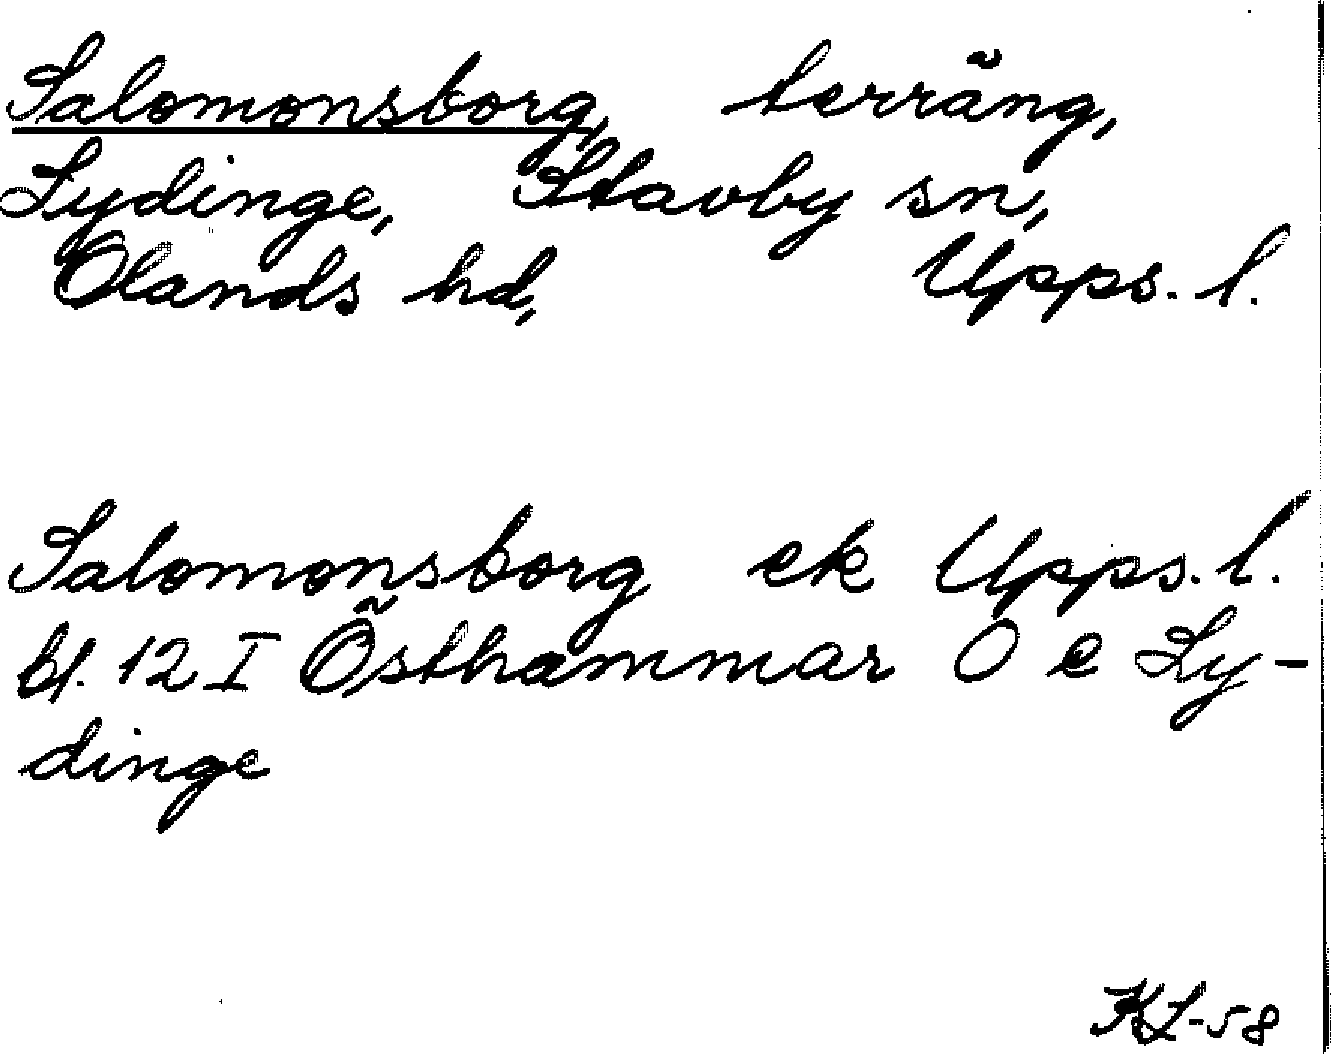 Salomonsborg, terräng,
Lydinge, Stavby sn,
Olands hd, Upps. l.
Salomonsborg ek Upps. l.
bl. 12 I Östhammar O e Ly-
dinge
KL-58